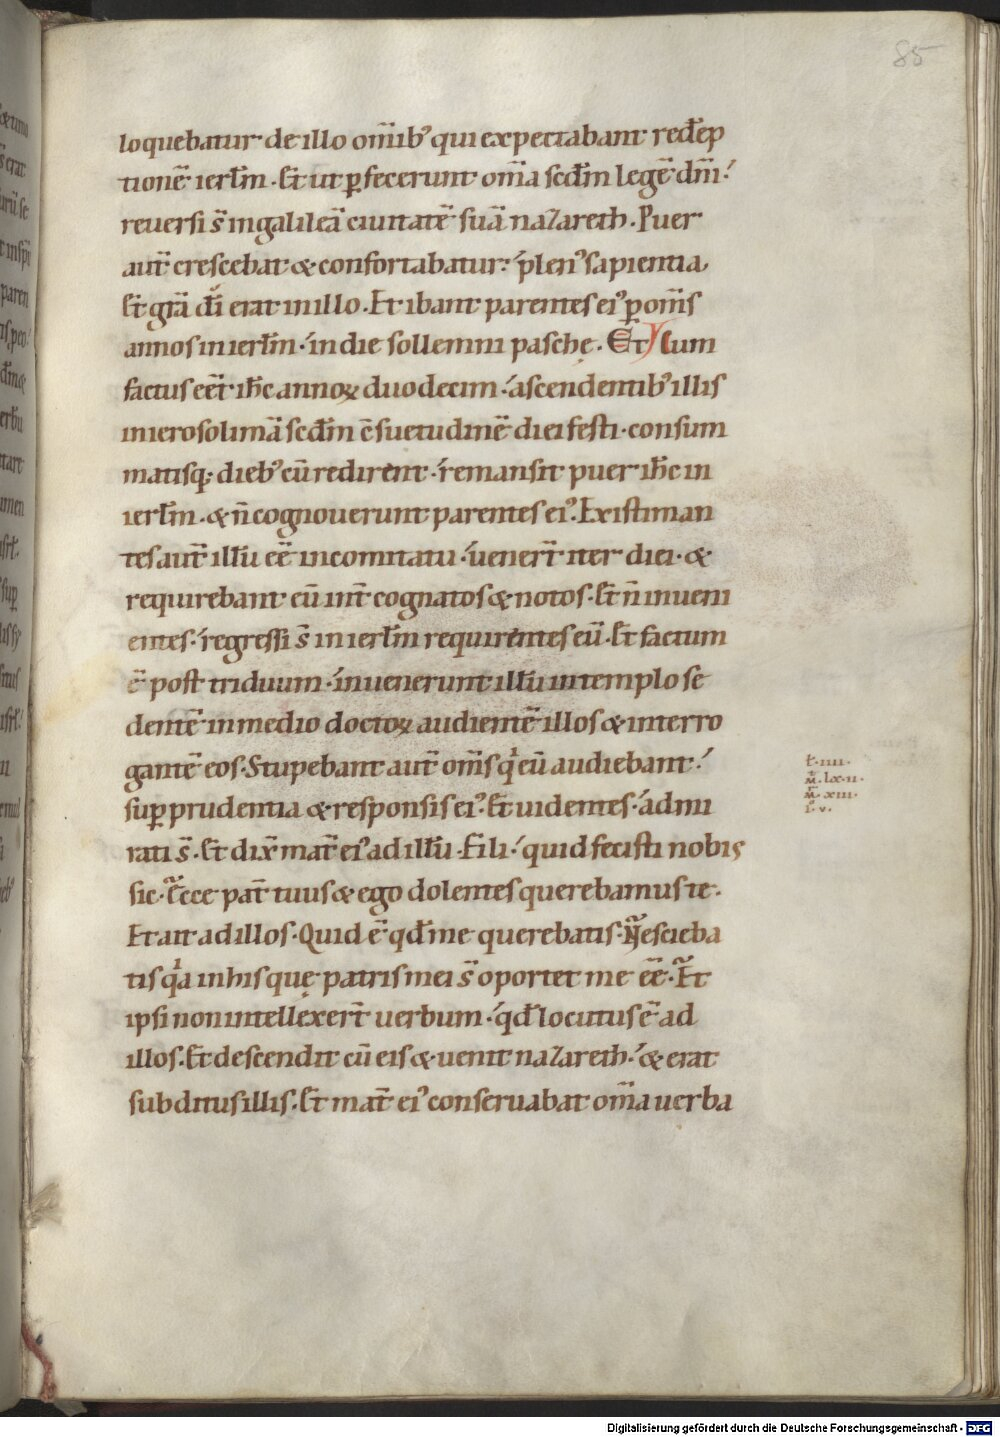 85
loquebatur de illo om̅ib᾽ qui expectabant rede̅p
tione̅ ierl̅m · Et̅ ut p̲fecerunt om̅ia scd̅m lege̅ dn̅i ·
reuersi s̅ in galilea̅ ciuitate̅ sua̅ nazareth . Puer
aut̅ crescebat & confortabatur · plen᾽ sapientia
Et̅ gra̅ di̅ erat in illo . Et ibant parentes ei᾽ p̲ om̅s
annos in ierl̅m · in die sollemni paschę . Et cum
factus ee̅t ih̅c annoꝝ duodecim · ascendentib᾽ illis
in ierosolima̅ scd̅m c̅suetudine̅ diei festi · consum
matisq; dieb᾽ cu̅ redirent · remansit puer ih̅c in
ierl̅m . & n̅ cognouerunt parentes ei᾽ . Existiman
tes aut̅ illu̅ ee̅ in comitatu · uener̅t iter diei · &
requirebant eu̅ int̅ cognatos & notos · Et̅ n̅ inueni
entes · regressi s̅ in ierl̅m requirentes eu̅ · Et̅ factum
e̅ post triduum · inuenerunt illu̅ in templo se
dente̅ in medio doctoꝝ audiente̅ illos & interro
gante̅ eos · Stupebant aut̅ om̅s qi eu̅ audiebant ·
sup̲ prudentia & responsis ei᾽ · Et̅ uidentes · admi
rati s̅ · Et̅ dix̅ mat̅ ei᾽ ad illu̅ · Fili · quid fecisti nobis
sic · Ecce pat̅ tuus & ego dolentes querebamus te ·
Et ait ad illos · Quid e̅ qd̅ me querebatis · Nescieba
tis qia in his quę patris mei s̅ oportet me ee̅ · Et
ipsi non intellexer̅t uerbum · qd̅ locutus e̅ ad
illos · Et descendit cu̅ eis & uenit nazareth · & erat
subditus illis · Et̅ mat̅ ei᾽ conseruabat om̅ia uerba
t · iiii ·
m̅ · lx · ii ·
m̅ · xiii ·
l · v ·
Digitalisierung gefördert durch die Deutsche Forschungsgemeinschaft - DFG